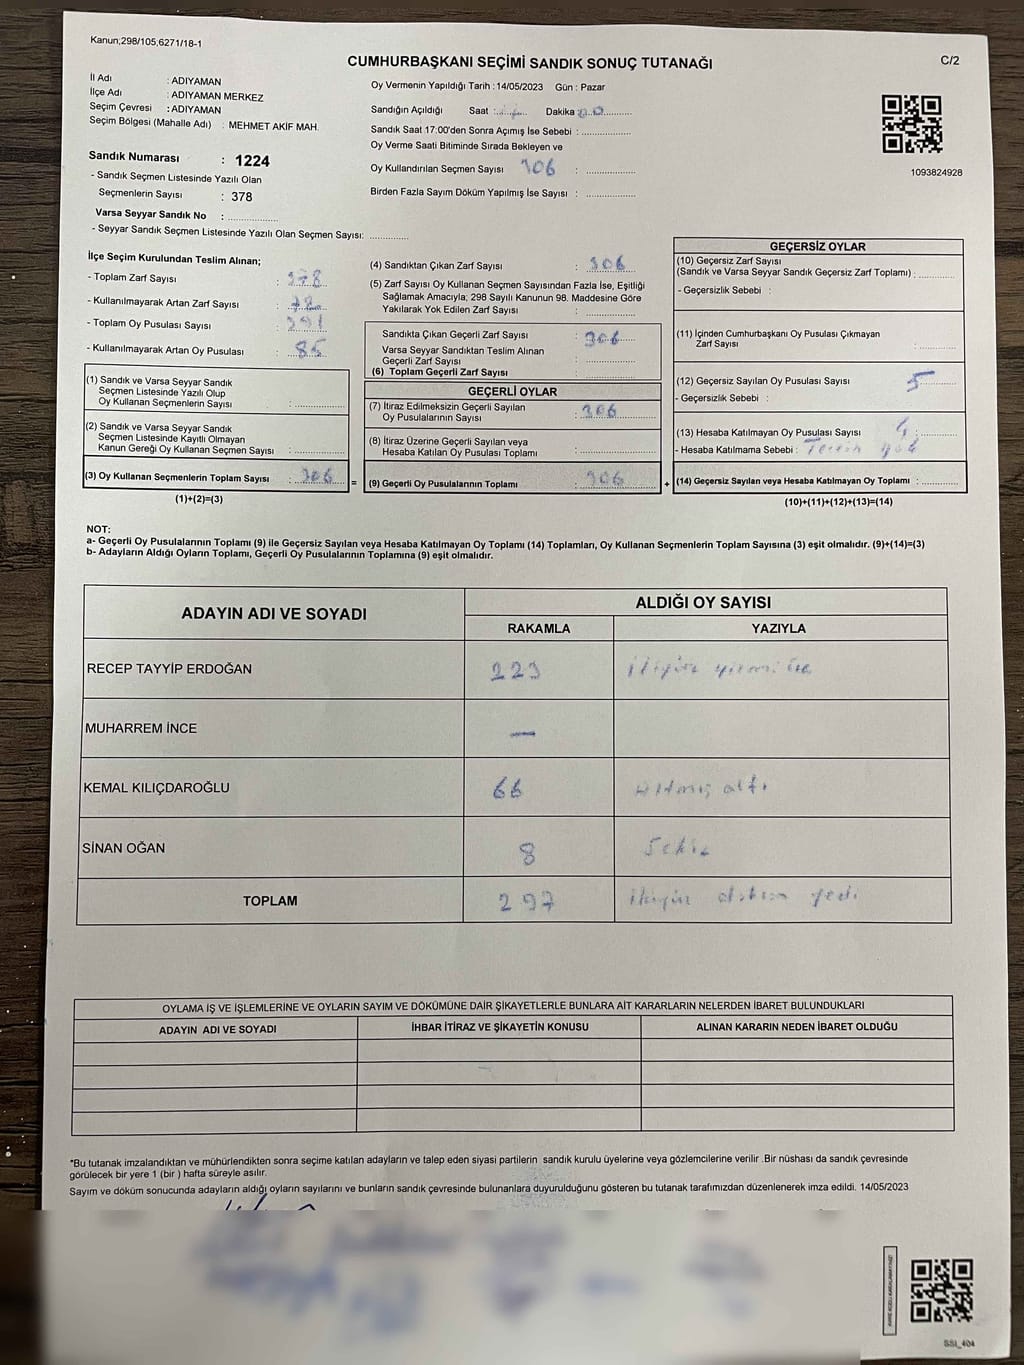 Kanun;298/105,6271/18-1
CUMHURBAŞKANI SEÇİMİ SANDIK SONUÇ TUTANAĞI
C/2
İl Adı : ADIYAMAN
İlçe Adı : ADIYAMAN MERKEZ
Seçim Çevresi : ADIYAMAN
Seçim Bölgesi (Mahalle Adı) : MEHMET AKİF MAH.
Sandık Numarası : 1224
- Sandık Seçmen Listesinde Yazılı Olan
Seçmenlerin Sayısı : 378
Varsa Seyyar Sandık No : ..............
- Seyyar Sandık Seçmen Listesinde Yazılı Olan Seçmen Sayısı: ............
Oy Vermenin Yapıldığı Tarih : 14/05/2023 Gün : Pazar
Sandığın Açıldığı Saat : Dakika
Sandık Saat 17:00'den Sonra Açımış İse Sebebi : ..............
Oy Verme Saati Bitiminde Sırada Bekleyen ve
Oy Kullandırılan Seçmen Sayısı 306 : ..............
Birden Fazla Sayım Döküm Yapılmış İse Sayısı : ..............
1093824928
İlçe Seçim Kurulundan Teslim Alınan;
- Toplam Zarf Sayısı : 378
- Kullanılmayarak Artan Zarf Sayısı : 72
- Toplam Oy Pusulası Sayısı : 391
- Kullanılmayarak Artan Oy Pusulası : 85
(1) Sandık ve Varsa Seyyar Sandık
Seçmen Listesinde Yazılı Olup
Oy Kullanan Seçmenlerin Sayısı : ..............
(2) Sandık ve Varsa Seyyar Sandık
Seçmen Listesinde Kayıtlı Olmayan
Kanun Gereği Oy Kullanan Seçmen Sayısı : ..............
(3) Oy Kullanan Seçmenlerin Toplam Sayısı : 306 =
(1)+(2)=(3)
(4) Sandıktan Çıkan Zarf Sayısı : 306
(5) Zarf Sayısı Oy Kullanan Seçmen Sayısından Fazla İse, Eşitliği
Sağlamak Amacıyla; 298 Sayılı Kanunun 98. Maddesine Göre
Yakılarak Yok Edilen Zarf Sayısı : ..............
Sandıkta Çıkan Geçerli Zarf Sayısı : 306
Varsa Seyyar Sandıktan Teslim Alınan
Geçerli Zarf Sayısı : ..............
(6) Toplam Geçerli Zarf Sayısı : ..............
GEÇERLİ OYLAR
(7) İtiraz Edilmeksizin Geçerli Sayılan
Oy Pusulalarının Sayısı : 306
(8) İtiraz Üzerine Geçerli Sayılan veya
Hesaba Katılan Oy Pusulası Toplamı : ..............
(9) Geçerli Oy Pusulalarının Toplamı : 306 +
GEÇERSİZ OYLAR
(10) Geçersiz Zarf Sayısı
(Sandık ve Varsa Seyyar Sandık Geçersiz Zarf Toplamı) : ..........
- Geçersizlik Sebebi :
(11) İçinden Cumhurbaşkanı Oy Pusulası Çıkmayan
Zarf Sayısı : ..........
(12) Geçersiz Sayılan Oy Pusulası Sayısı 5 : ..........
- Geçersizlik Sebebi :
(13) Hesaba Katılmayan Oy Pusulası Sayısı 4 : ..........
- Hesaba Katılmama Sebebi :
(14) Geçersiz Sayılan veya Hesaba Katılmayan Oy Toplamı : ..........
(10)+(11)+(12)+(13)=(14)
NOT:
a- Geçerli Oy Pusulalarının Toplamı (9) ile Geçersiz Sayılan veya Hesaba Katılmayan Oy Toplamı (14) Toplamları, Oy Kullanan Seçmenlerin Toplam Sayısına (3) eşit olmalıdır. (9)+(14)=(3)
b- Adayların Aldığı Oyların Toplamı, Geçerli Oy Pusulalarının Toplamına (9) eşit olmalıdır.
ADAYIN ADI VE SOYADI ALDIĞI OY SAYISI
RAKAMLA YAZIYLA
RECEP TAYYİP ERDOĞAN 223 ikiyüz yirmi üç
MUHARREM İNCE —
KEMAL KILIÇDAROĞLU 66 Altmış altı
SİNAN OĞAN 8 Sekiz
TOPLAM 297 ikiyüz doksan yedi
OYLAMA İŞ VE İŞLEMLERİNE VE OYLARIN SAYIM VE DÖKÜMÜNE DAİR ŞİKAYETLERLE BUNLARA AİT KARARLARIN NELERDEN İBARET BULUNDUKLARI
ADAYIN ADI VE SOYADI İHBAR İTİRAZ VE ŞİKAYETİN KONUSU ALINAN KARARIN NEDEN İBARET OLDUĞU
*Bu tutanak imzalandıktan ve mühürlendikten sonra seçime katılan adayların ve talep eden siyasi partilerin sandık kurulu üyelerine veya gözlemcilerine verilir .Bir nüshası da sandık çevresinde
görülecek bir yere 1 (bir ) hafta süreyle asılır.
Sayım ve döküm sonucunda adayların aldığı oyların sayılarını ve bunların sandık çevresinde bulunanlara duyurulduğunu gösteren bu tutanak tarafımızdan düzenlenerek imza edildi. 14/05/2023
SSI_404